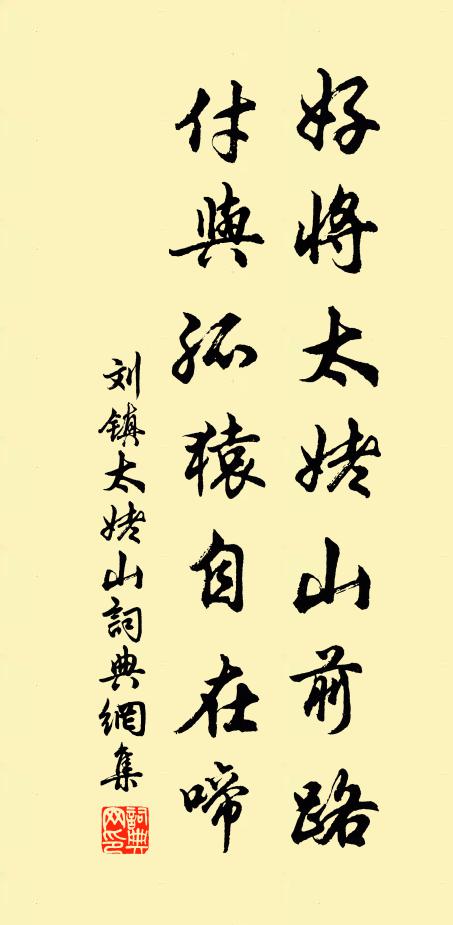 好將太姥山前路
付與孤猿自在啼
刘鎮太姥山詞典網集
詞典网印